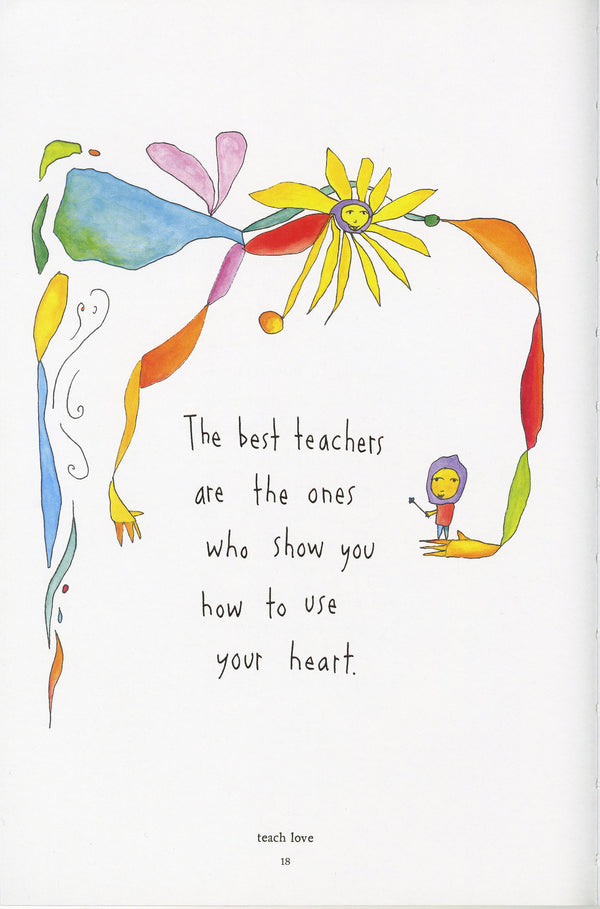 The best teachers
are the ones
who show you
how to use
your heart.
teach love
18